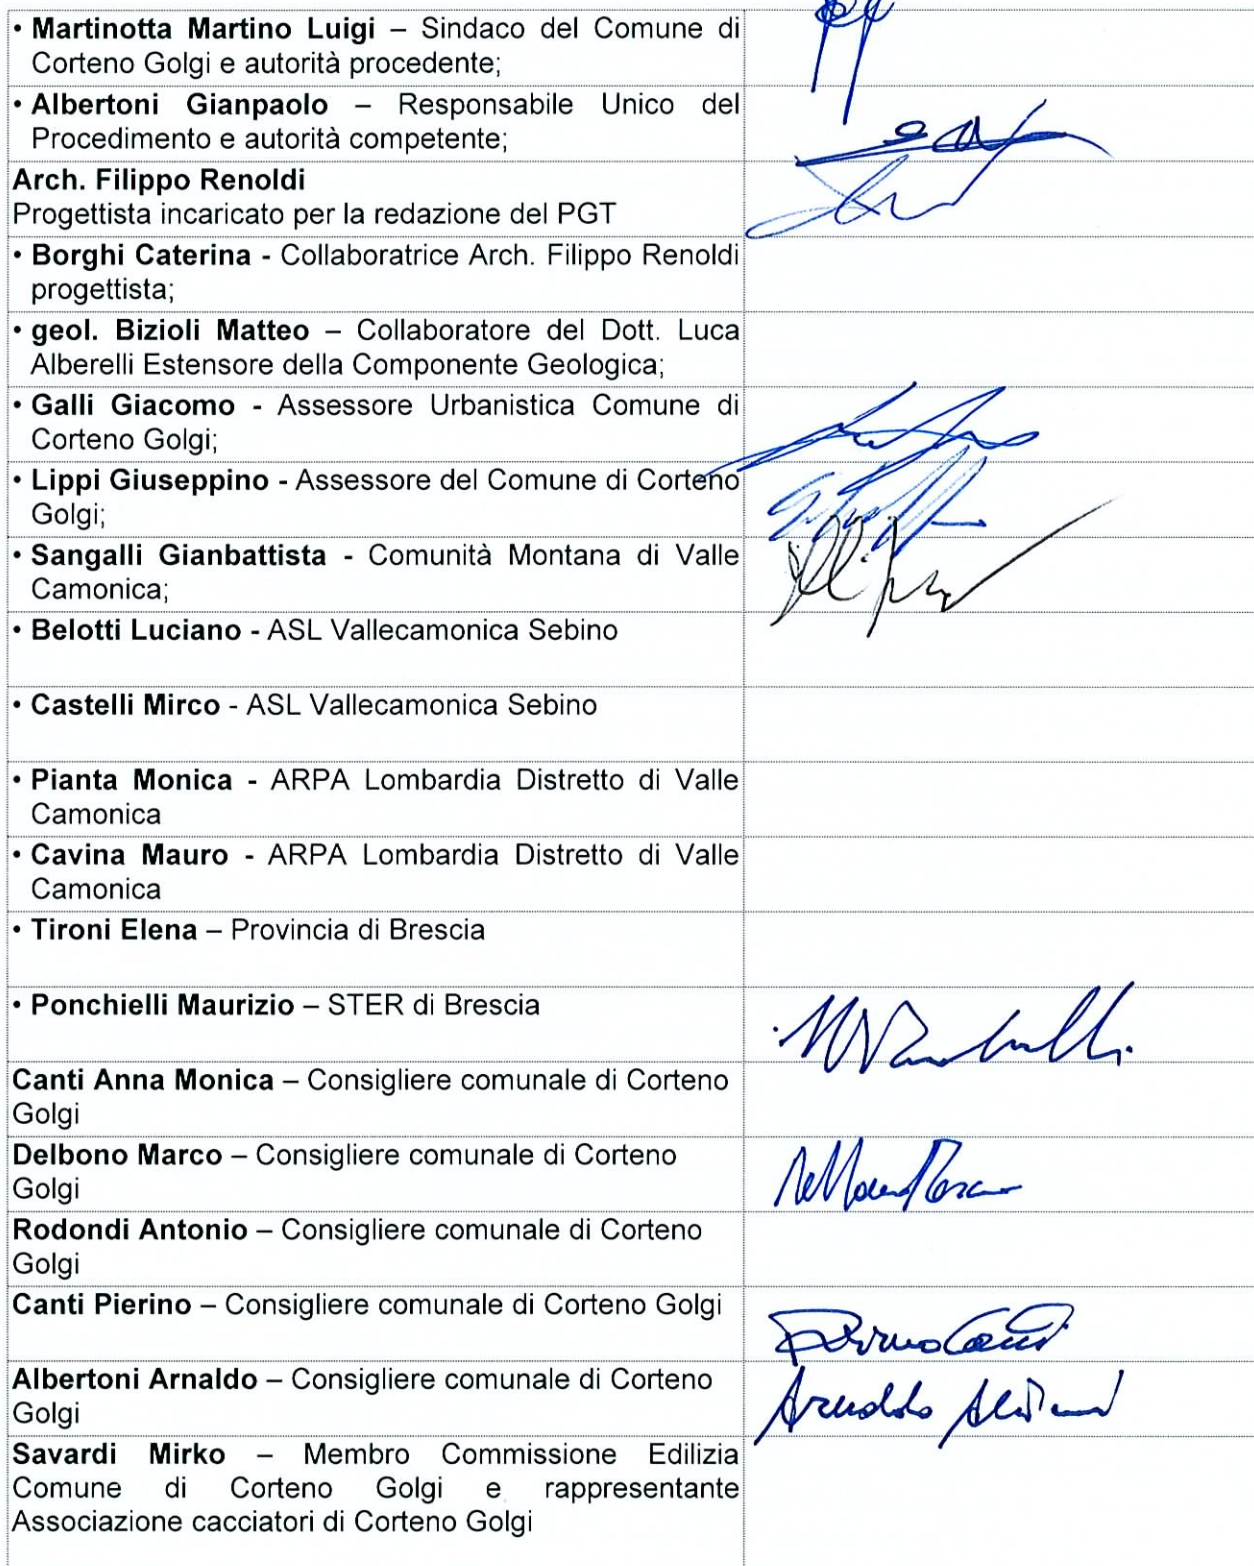 • Martinotta Martino Luigi – Sindaco del Comune di
Corteno Golgi e autorità procedente;
• Albertoni Gianpaolo – Responsabile Unico del
Procedimento e autorità competente;
Arch. Filippo Renoldi
Progettista incaricato per la redazione del PGT
• Borghi Caterina - Collaboratrice Arch. Filippo Renoldi
progettista;
• geol. Bizioli Matteo – Collaboratore del Dott. Luca
Alberelli Estensore della Componente Geologica;
• Galli Giacomo - Assessore Urbanistica Comune di
Corteno Golgi;
• Lippi Giuseppino - Assessore del Comune di Corteno
Golgi;
• Sangalli Gianbattista - Comunità Montana di Valle
Camonica;
• Belotti Luciano - ASL Vallecamonica Sebino
• Castelli Mirco - ASL Vallecamonica Sebino
• Pianta Monica - ARPA Lombardia Distretto di Valle
Camonica
• Cavina Mauro - ARPA Lombardia Distretto di Valle
Camonica
• Tironi Elena – Provincia di Brescia
• Ponchielli Maurizio – STER di Brescia
Canti Anna Monica – Consigliere comunale di Corteno
Golgi
Delbono Marco – Consigliere comunale di Corteno
Golgi
Rodondi Antonio – Consigliere comunale di Corteno
Golgi
Canti Pierino – Consigliere comunale di Corteno Golgi
Pierino Canti
Albertoni Arnaldo – Consigliere comunale di Corteno
Golgi
Arnaldo Albertoni
Savardi Mirko – Membro Commissione Edilizia
Comune di Corteno Golgi e rappresentante
Associazione cacciatori di Corteno Golgi